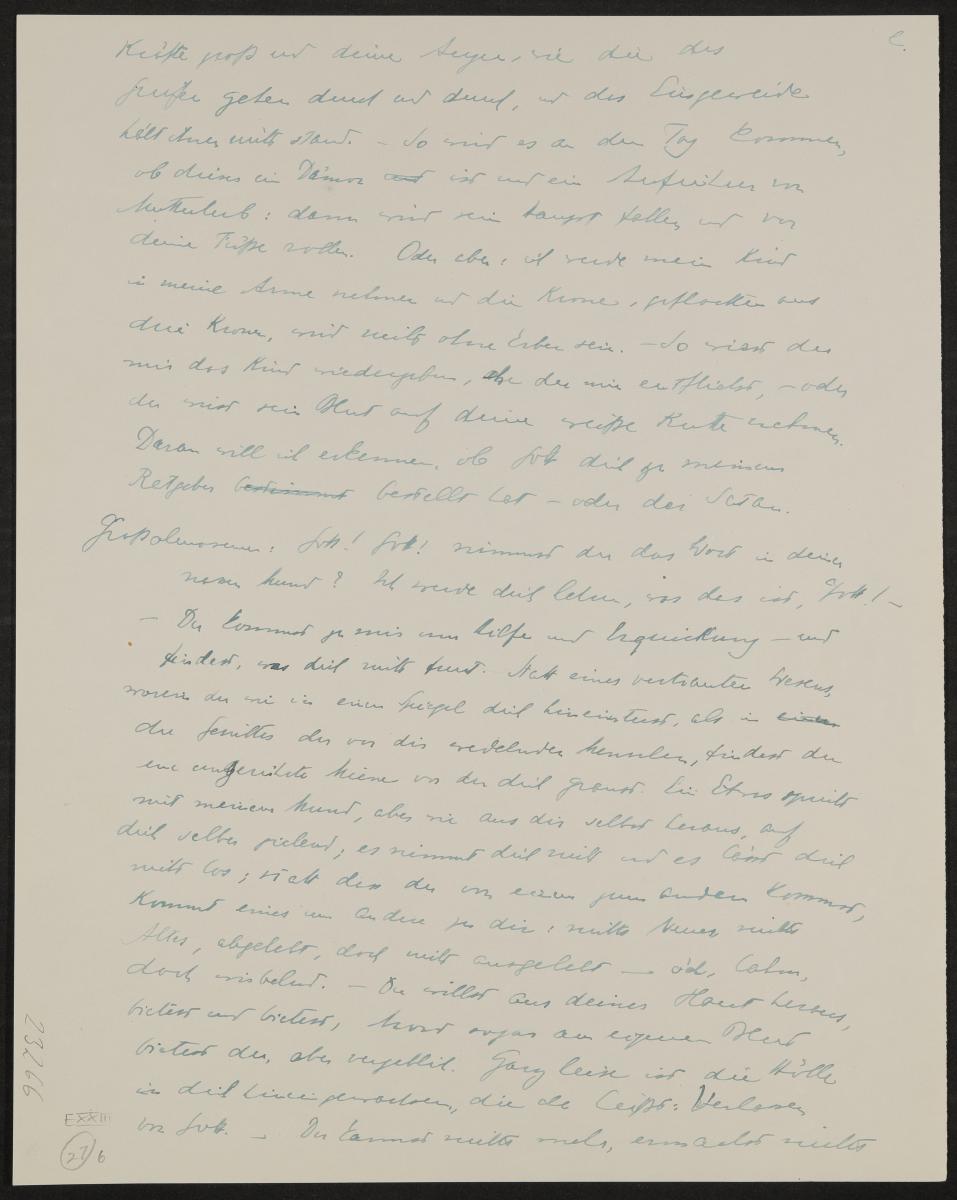 c.
Kräfte groß und deine Augen, wie die des
Greifen gehen durch und durch, und das Eingeweide
hält ihnen nicht stand. – So wird es an den Tag kommen,
ob dieses ein Dämon und ist und ein Aufrührer von
Mutterleib: dann wird sein Haupt fallen und vor
deine Füße rollen. Oder aber: ich werde mein Kind
in meine Arme nehmen und die Krone, geflochten aus
drei Kronen, wird nicht ohne Erben sein. – So wirst du
mir das Kind wiedergeben, ehe du mir entfliehst, – oder
du wirst sein Blut auf deine weiße Kutte nehmen.
Daran will ich erkennen, ob Gott dich zu meinem
Ratgeber bestimmt bestellt hat – oder der Satan.
Großalmosenier: Gott! Gott! nimmst du das Wort in deinen
Mund? Ich werde dich lehren, was das ist, Gott! –
– Du kommst zu mir um Hilfe und Erquickung – und
findest, was dich nicht freut. Statt eines vertrauten Wesens,
worein du wie in einen Spiegel dich hineintust, als in einen
die Gesichter der vor dir wedelnden Menschen, findest du
eine ungerührte Miene vor der dich graust. Ein Etwas spricht
mit meinem Mund, aber wie aus dir selber heraus, auf
dich selber zielend; es nimmt dich nicht und es lässt dich
nicht los; statt dass du von einem zum andern kommst,
kommt eines ums andere zu dir: nichts Neues, nichts
Altes, abgelebt, doch nicht ausgelebt – öd, lahm,
doch wirbelnd. – Du willst aus deiner Haut heraus,
bietest und bietest, sogar am eigenen Blut
bietest du, aber vergeblich. Ganz leise ist die Hölle
in dich hineingewachsen, die da heißt: Verlassen
von Gott. – Du kannst nichts mehr, ermachst nichts
23266
E XXIII
27 6